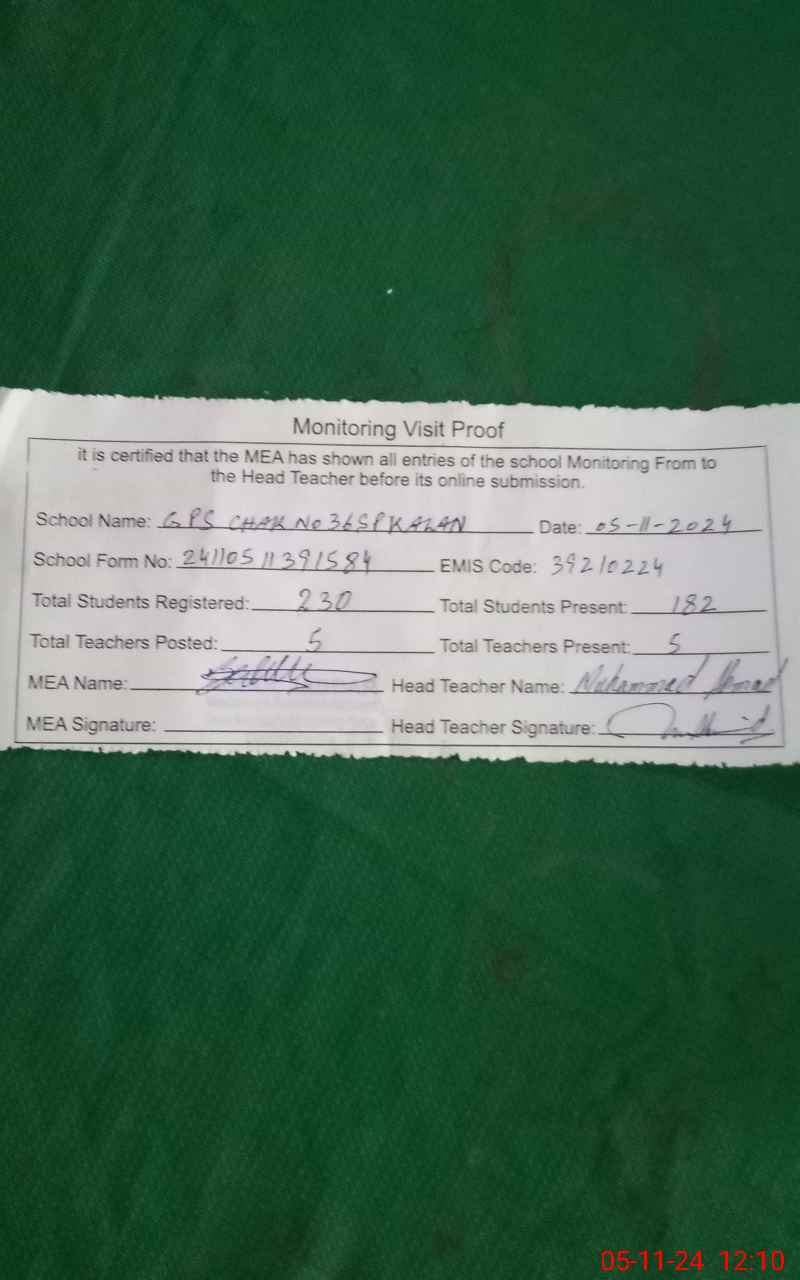 Monitoring Visit Proof
it is certified that the MEA has shown all entries of the school Monitoring From to
the Head Teacher before its online submission.
School Name: GPS CHAK No 36SP KALAN Date: 05-11-2024
School Form No: 24110511391584 EMIS Code: 39210224
Total Students Registered: 230 Total Students Present: 182
Total Teachers Posted: 5 Total Teachers Present: 5
MEA Name: Head Teacher Name: Muhammad Ahmad
MEA Signature: Head Teacher Signature:
05-11-24 12:10